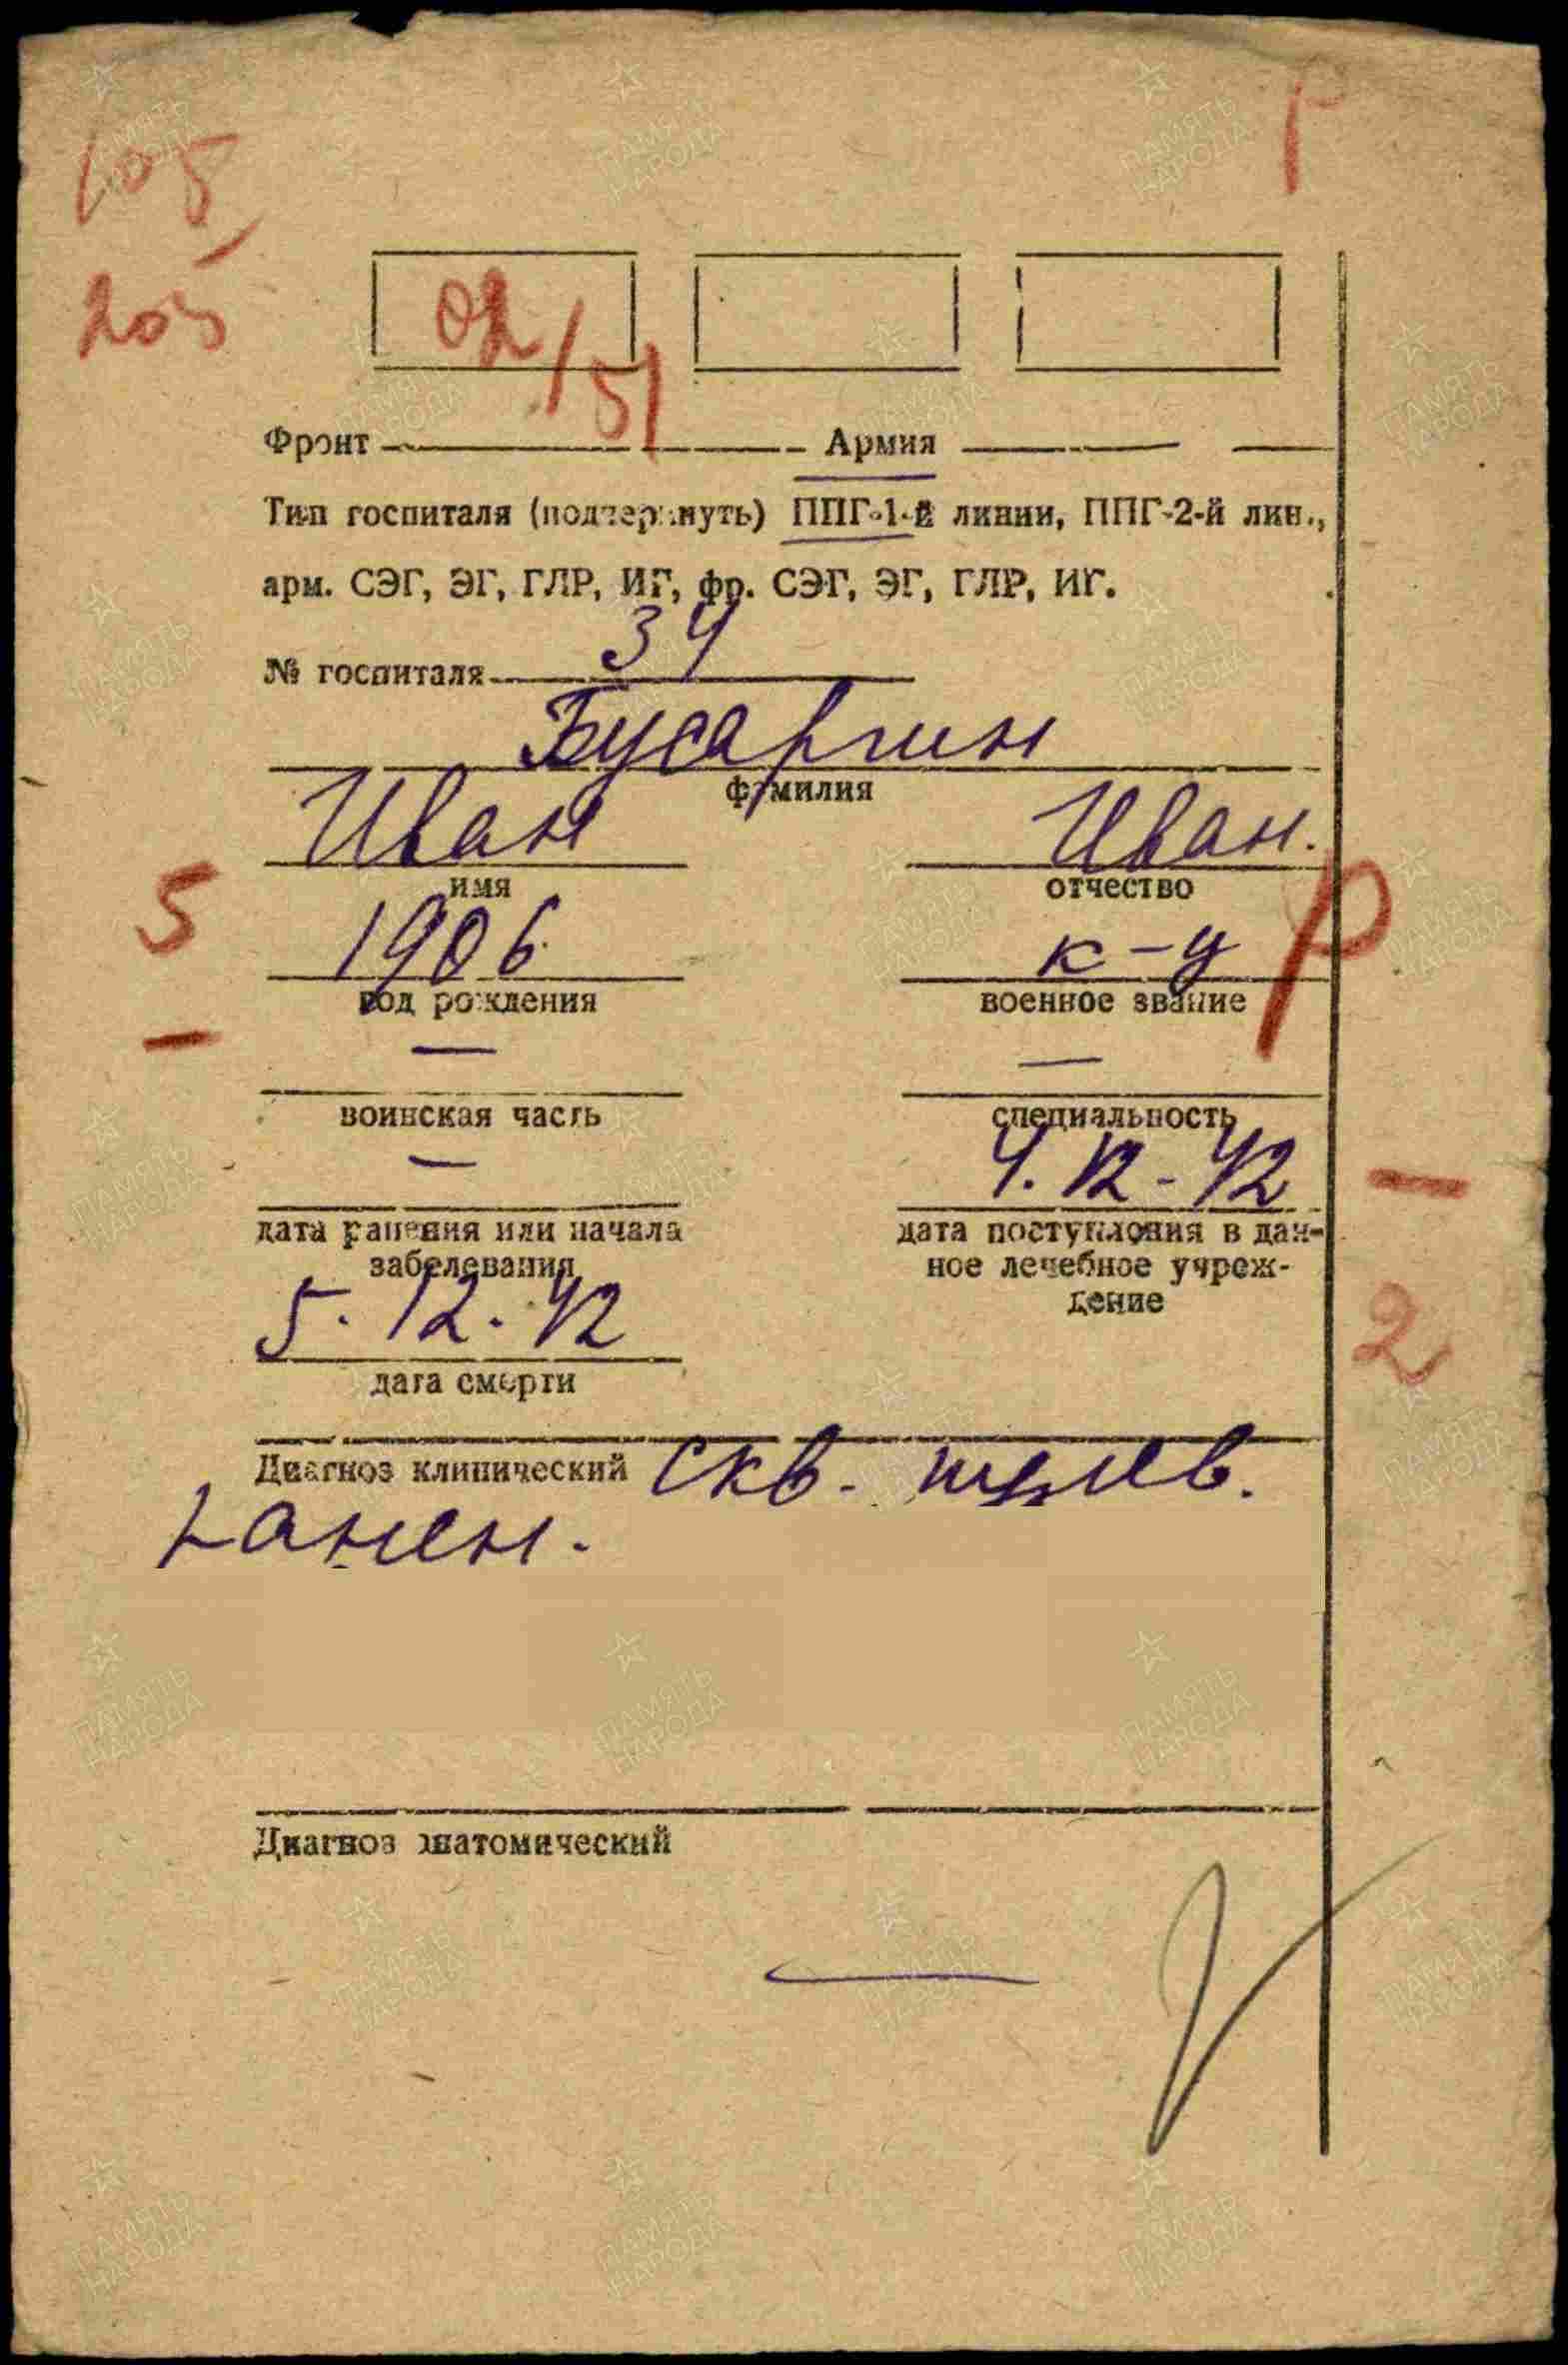 105
205
Г
02/51
Фронт Армия
Тип госпиталя (подчеркнуть) ППГ-1-й линии, ППГ-2-й лин.,
арм. СЭГ, ЭГ, ГЛР, ИГ, фр. СЭГ, ЭГ, ГЛР, ИГ.
№ госпиталя 34
Бусаргин
фамилия
Иван Иван.
имя отчество
5 1906 к-ц Р
год рождения военное звание
— —
воинская часть специальность
— 4.12-42
дата ранения или начала заболевания
дата поступления в данное лечебное учреждение
5.12.42 2
дата смерти
Диагноз клинический Скв. пулев.
ранен.
Диагноз анатомический
ПАМЯТЬ
НАРОДА